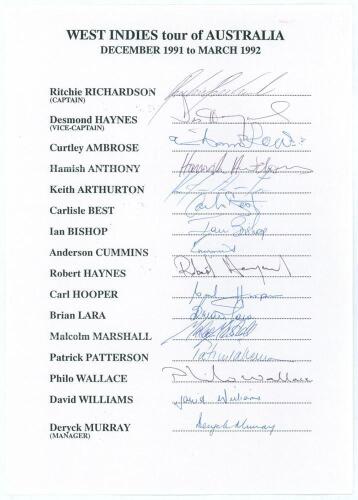 WEST INDIES tour of AUSTRALIA
DECEMBER 1991 to MARCH 1992
Ritchie RICHARDSON
(CAPTAIN)
Desmond HAYNES
(VICE-CAPTAIN)
Curtley AMBROSE
Hamish ANTHONY
Keith ARTHURTON
Carlisle BEST
Ian BISHOP Ian Bishop
Anderson CUMMINS
Robert HAYNES Robert Haynes
Carl HOOPER
Brian LARA Brian Lara
Malcolm MARSHALL
Patrick PATTERSON
Philo WALLACE Philo Wallace
David WILLIAMS David Williams
Deryck MURRAY Deryck Murray
(MANAGER)